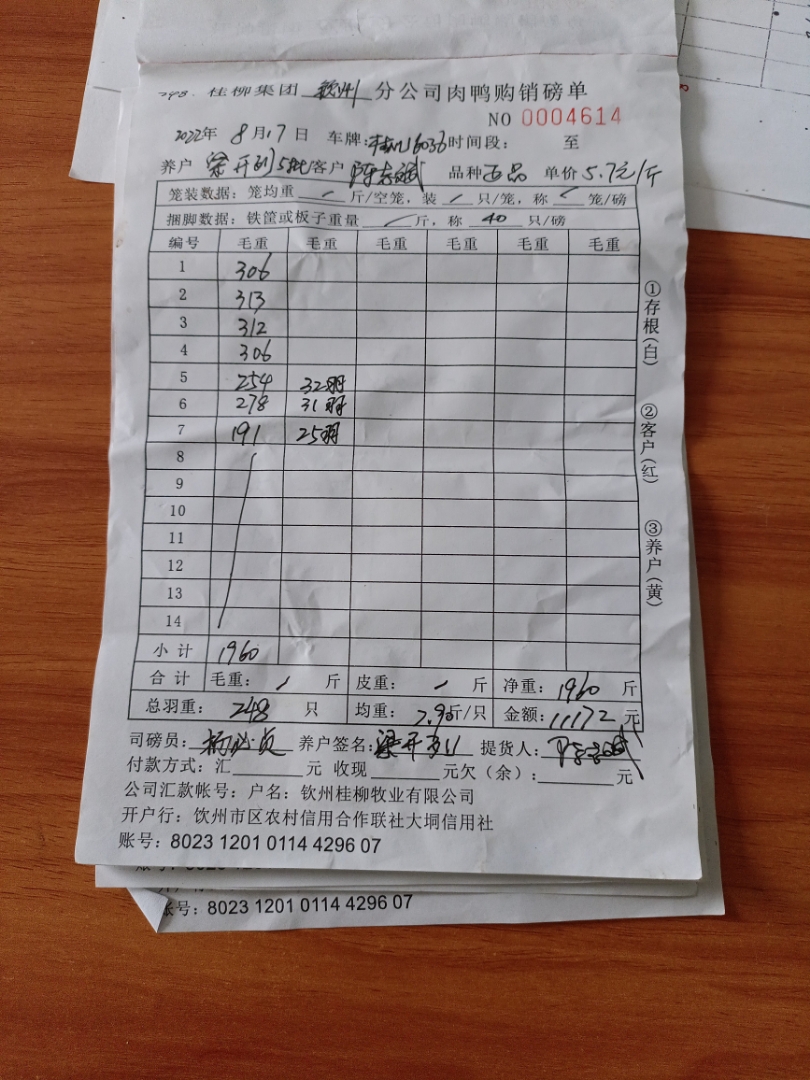 桂柳集团 钦州 分公司肉鸭购销磅单
NO 0004614
2022年 8月17日 车牌: 16036 时间段: 至
养户 梁开 5批 客户 陈志斌 品种 西品 单价 5.7元/斤
笼装数据: 笼均重 / 斤/空笼, 装 / 只/笼, 称 / 笼/磅
捆脚数据: 铁筐或板子重量 / 斤, 称 40 只/磅
编号 毛重 毛重 毛重 毛重 毛重 毛重
1 306
2 313
3 312
4 306
5 254 32羽
6 278 31羽
7 191 25羽
8
9
10
11
12
13
14
小计 1960
合计 毛重: / 斤 皮重: / 斤 净重: 1960 斤
总羽重: 248 只 均重: 7.90斤/只 金额: 11172 元
司磅员: 养户签名: 梁开 提货人:
付款方式: 汇 元 收现 元欠(余): 元
公司汇款帐号: 户名: 钦州桂柳牧业有限公司
开户行: 饮州市区农村信用合作联社大垌信用社
账号: 8023 1201 0114 4296 07
①存根(白)
②客户(红)
③养户(黄)
账号: 8023 1201 0114 4296 07